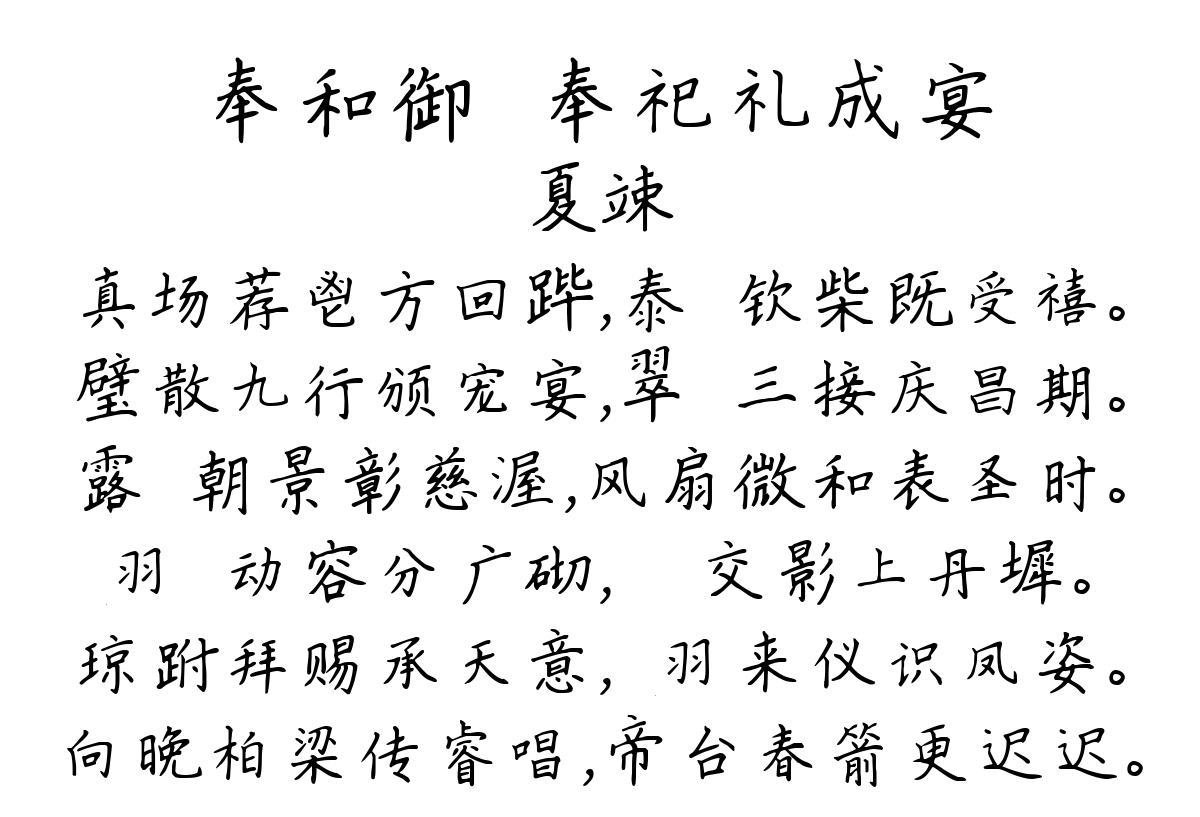 奉和御 奉祀礼成宴
夏竦
真场荐鬯方回跸,泰 钦柴既受禧。
璧散九行颁宠宴,翠 三接庆昌期。
露 朝景彰慈渥,风扇微和表圣时。
羽 动容分广砌, 交影上丹墀。
琼跗拜赐承天意, 羽来仪识凤姿。
向晚柏梁传睿唱,帝台春箭更迟迟。